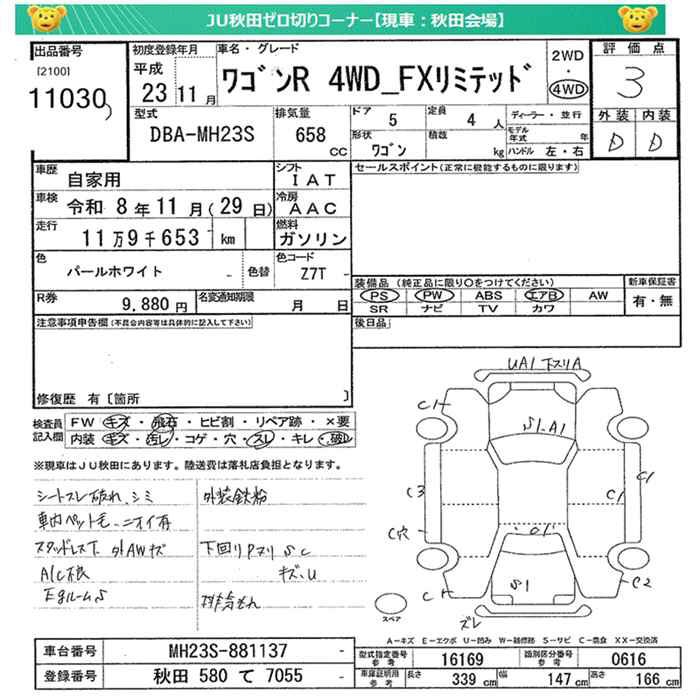 JU秋田ゼロ切りコーナー【現車：秋田会場】
出品番号
[2100]
11030
初度登録年月
平成
23 11 月
車名・グレード
ワゴンR 4WD_FXリミテッド
2WD
・
4WD
評価点
3
外装 内装
D D
型式
DBA-MH23S
排気量
658
CC
ドア
5
定員
4 人
形状
ワゴン
積載
kg
ディーラー・並行
モデル年式
年
ハンドル 左・右
車歴
自家用
シフト
IAT
車検
令和 8 年 11 月 ( 29 日)
冷房
AAC
走行
11 万 9 千 653 km
燃料
ガソリン
色
パールホワイト
-
色替
色コード
Z7T
-
R券
9,880 円
名変通知期限
月 日
セールスポイント(正常に機能するものに限ります)
装備品(純正品に限り○をつけてください)
PS PW ABS エアB AW
SR ナビ TV カワ
新車保証書
有・無
後日品
注意事項申告欄(不具合内容等は具体的に記入して下さい)
修復歴 有〔箇所 〕
検査員記入欄
FW キズ・飛石・ヒビ割・リペア跡・×要
内装 キズ・汚レ・コゲ・穴・スレ・キレ・破レ
※現車はJU秋田にあります。陸送費は落札店負担となります。
シートスレ破れ、シミ
車内ペット毛、ニオイ有
スタッドレス下 外AWキズ
外装鉄粉
下回りPスリ S C
キズ、U
UA1 下スリA
C1
S1.A1
C3
C1
C1
C穴
C1
S1
C1
C2
ズレ
スペア
A－キズ E－エクボ U－凹み W－補修跡 S－サビ C－腐食 XX－交換済
車台番号
MH23S-881137
-
登録番号
秋田 580 て 7055
-
型式指定番号
参考
16169
類別区分番号
参考
0616
車庫証明用
参考
長さ
339 cm
幅
147 cm
高さ
166 cm